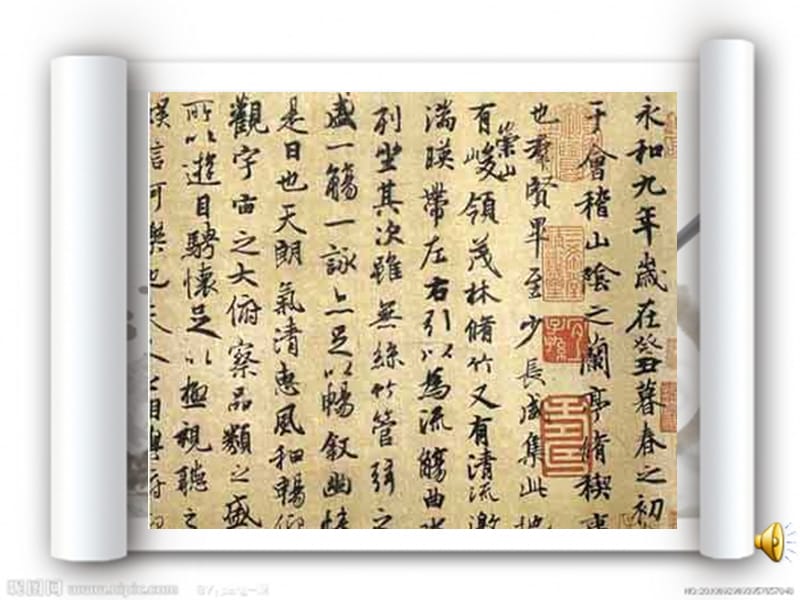 永和九年歲在癸丑暮春之初
于會稽山陰之蘭亭脩稧事
也羣賢畢至少長咸集此地
有崇山峻領茂林脩竹又有清流激
湍暎帶左右引以為流觴曲水
列坐其次雖無絲竹管弦之
盛一觴一詠亦足以暢敘幽情
是日也天朗氣清惠風和暢仰
觀宇宙之大俯察品類之盛
所以遊目騁懷足以極視聽之
娛信可樂也夫人之相與俯仰
昵图网 www.nipic.com